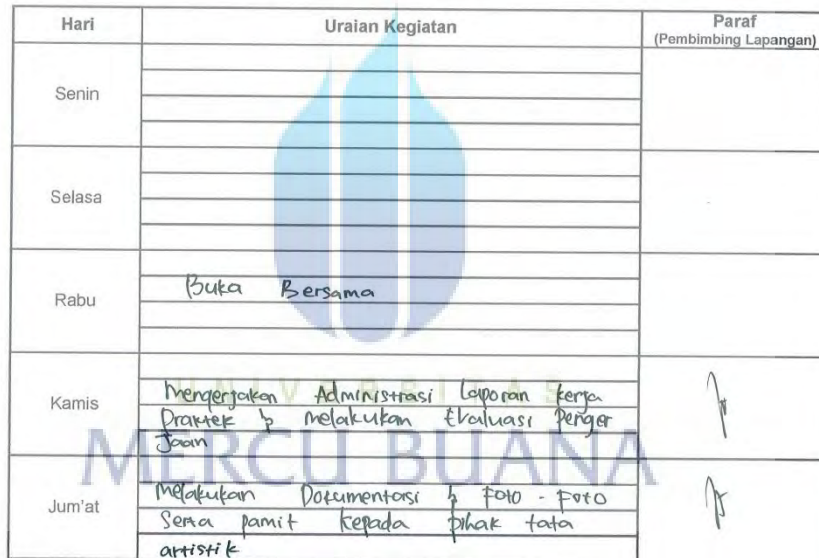 Hari Uraian Kegiatan Paraf
(Pembimbing Lapangan)
Senin
Selasa
Rabu
Buka Bersama
Kamis
Mengerjakan Administrasi Laporan kerja
Praktek & melakukan Evaluasi Penger
Jaan
UNIVERSITAS
MERCU BUANA
Jum'at
Melakukan Dokumentasi & Foto - Foto
Serta pamit kepada pihak tata
artistik